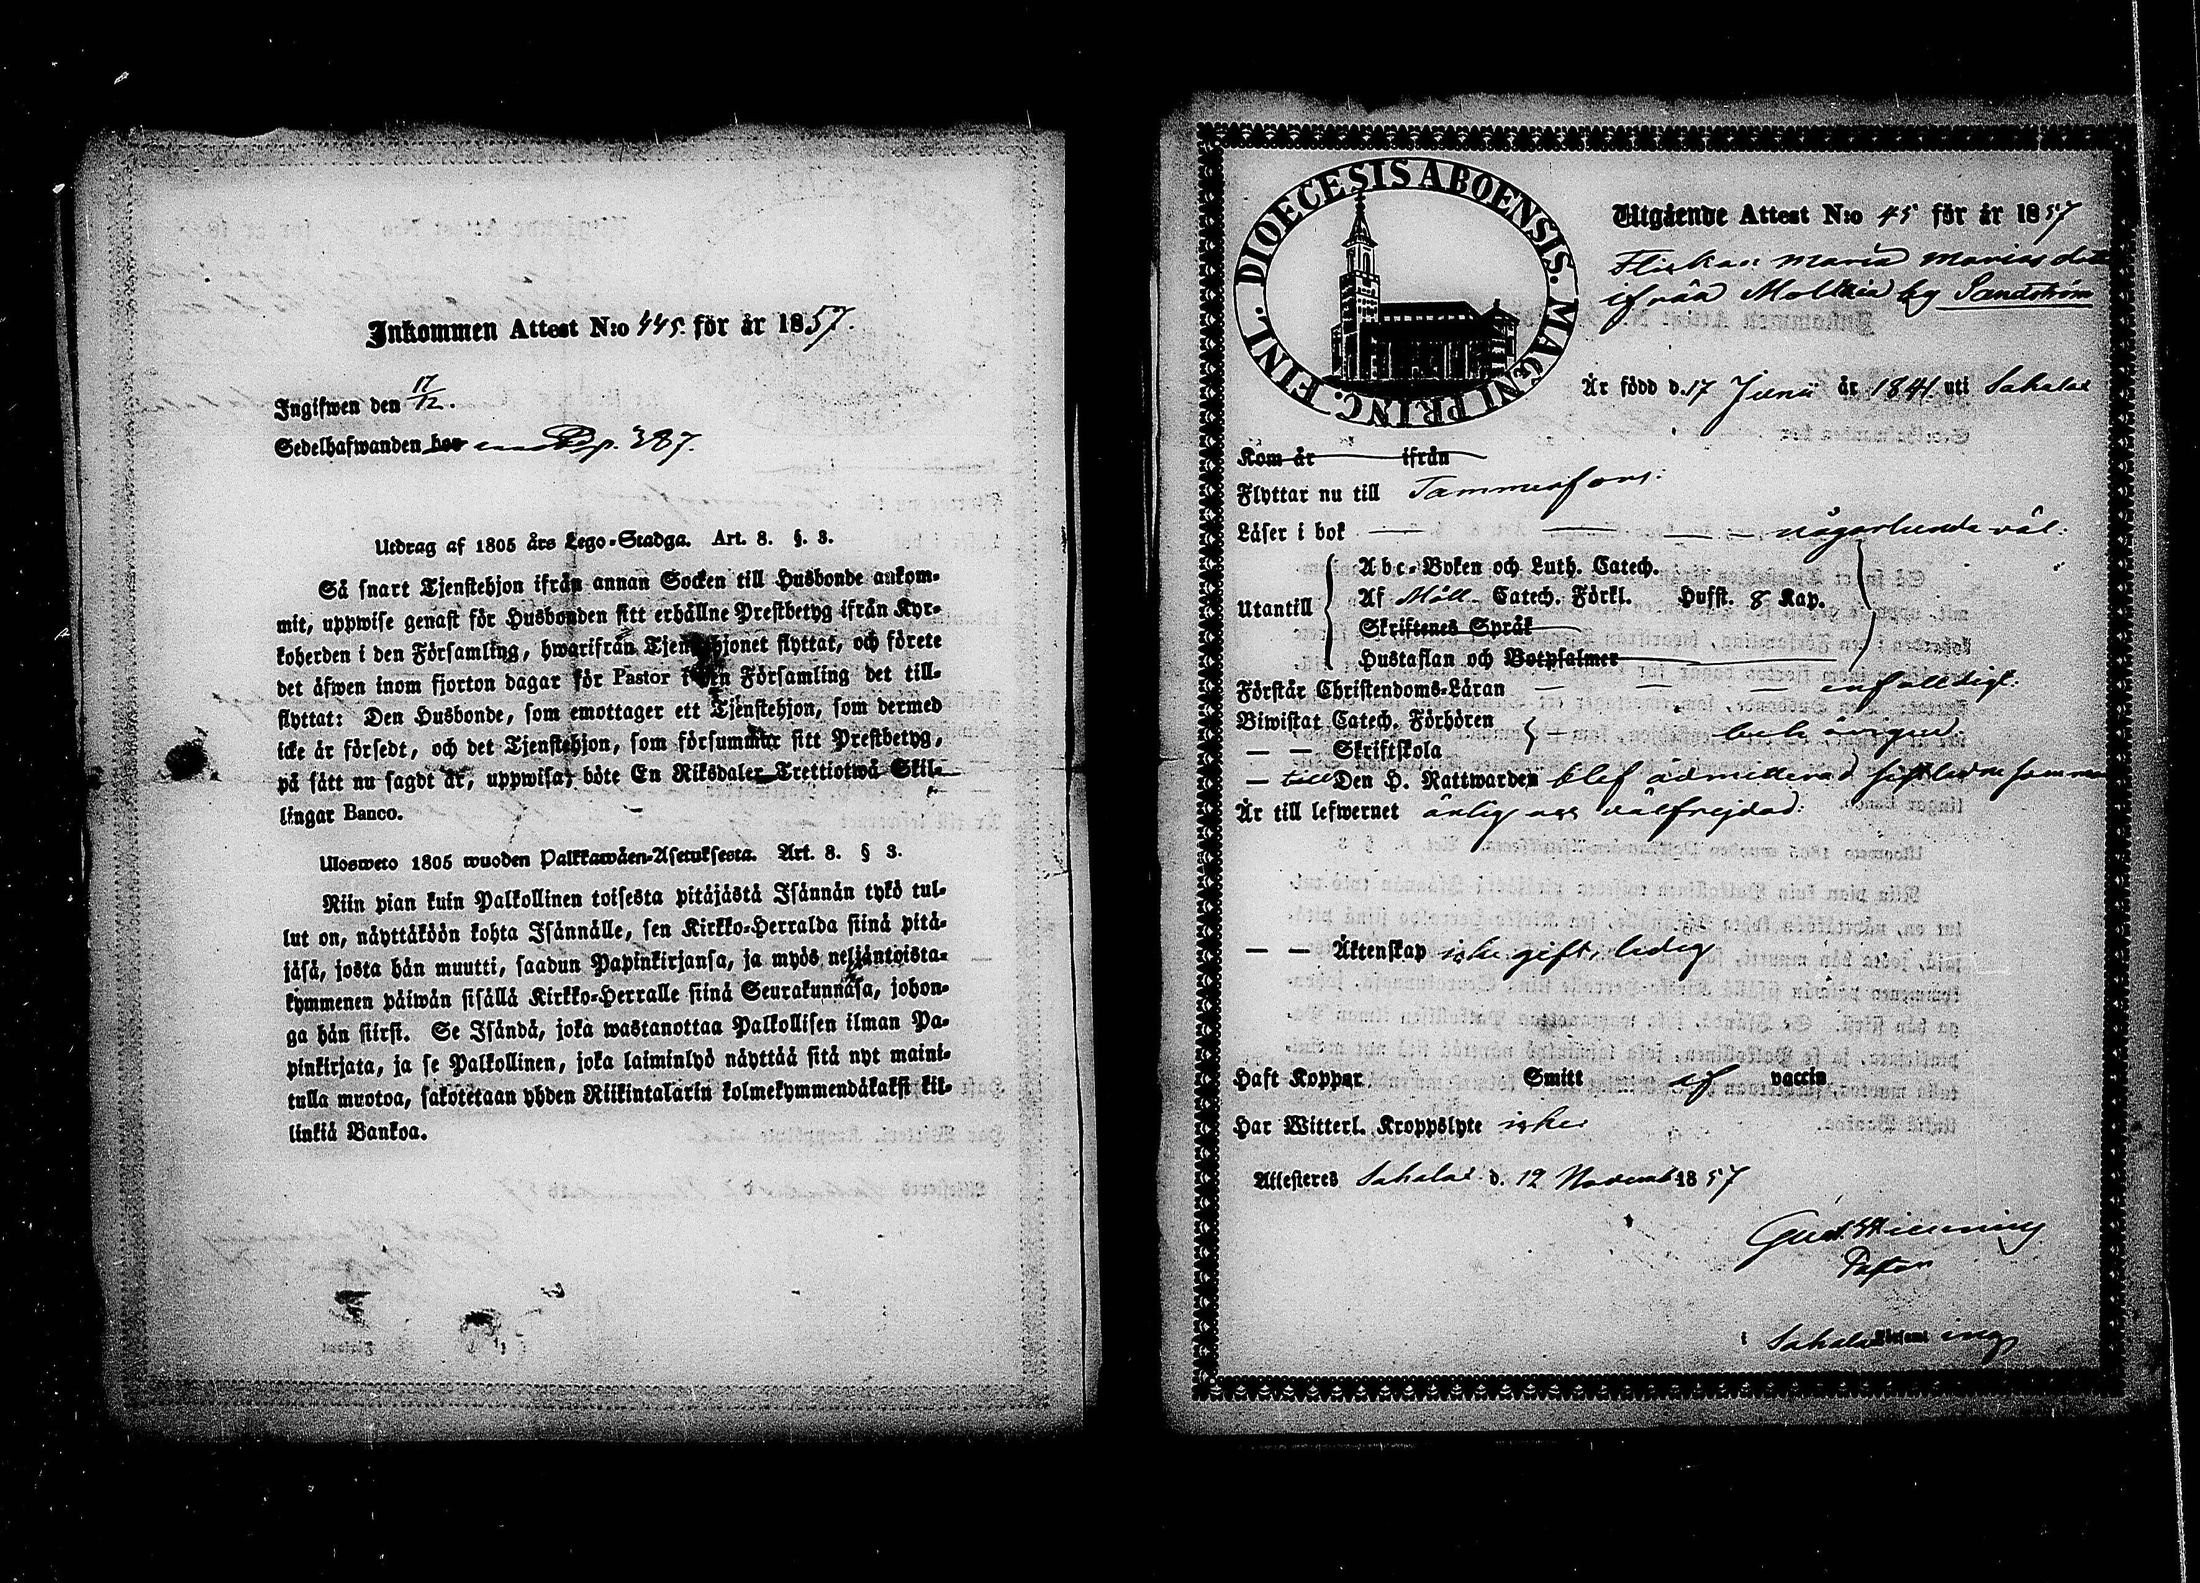 Inkommen Attest N:o 445. för år 1857.
Ingifwen den 17/12.
Sedelhafwanden bor p. 387.
Utdrag af 1805 års Lego-Stadga. Art. 8. §. 3.
Så snart Tjenstehjon ifrån annan Socken till Husbonde ankom-
mit, uppwise genast för Husbonden sitt erhållne Prestbetyg ifrån Kyr-
koherden i den Församling, hwarifrån Tjenstehjonet flyttat, och förete
det äfwen inom fjorton dagar för Pastor i den Församling det till-
flyttat: Den Husbonde, som emottager ett Tjenstehjon, som dermed
icke är försedt, och det Tjenstehjon, som försummar sitt Prestbetyg,
på sätt nu sagdt är, uppwisa, böte En Riksdaler Trettiotwå Skil-
lingar Banco.
Ulosweto 1805 wuoden Palkkawäen-Asetuksesta. Art. 8. § 3.
Niin pian kuin Palkollinen toisesta pitäjästä Isännän tykö tul-
lut on, näyttäköön kohta Isännälle, sen Kirkko-Herralda siinä pitä-
jäsä, josta hän muutti, saadun Papinkirjansa, ja myös neljäntoista-
kymmenen päiwän sisällä Kirkko-Herralle siinä Seurakunnasa, johon-
ga hän siirsi. Se Isändä, joka wastanottaa Palkollisen ilman Pa-
pinkirjata, ja se Palkollinen, joka laiminlyö näyttää sitä nyt maini-
tulla muotoa, sakotetaan yhden Riikintalarin kolmekymmendäkaksi kil-
linkiä Bankoa.
DIOECESIS ABOENSIS. MAGNI PRINC. FINL.
Utgående Attest N:o 45 för år 1857
Flickan Maria Mariasdtr
ifrån Moltsia by Sandström
Är född d. 17 Junii år 1841 uti Sahalax
Kom år ifrån
Flyttar nu till Tammerfors:
Läser i bok — — — — någorlunda väl:
Utantill
Abc-Boken och Luth. Catech.
Af Möll. Catech. Förkl. Husst. 8 Kap.
Skriftenes Språk
Hustaflan och Botpsalmer
Förstår Christendoms-Läran — — — enfalldigt:
Biwistat Catech. Förhören
— — Skriftskola
— till Den H. Nattwarden blef admitterad sistledne sommar
Är till lefwernet ärlig och välfrejdad:
— — Äktenskap icke gift, ledig
Haft Koppor Smitt af vaccin
Har Witterl. Kroppslyte icke
Attesteras Sahalax d. 12 Novemb 1857
Pastor
i Sahalax